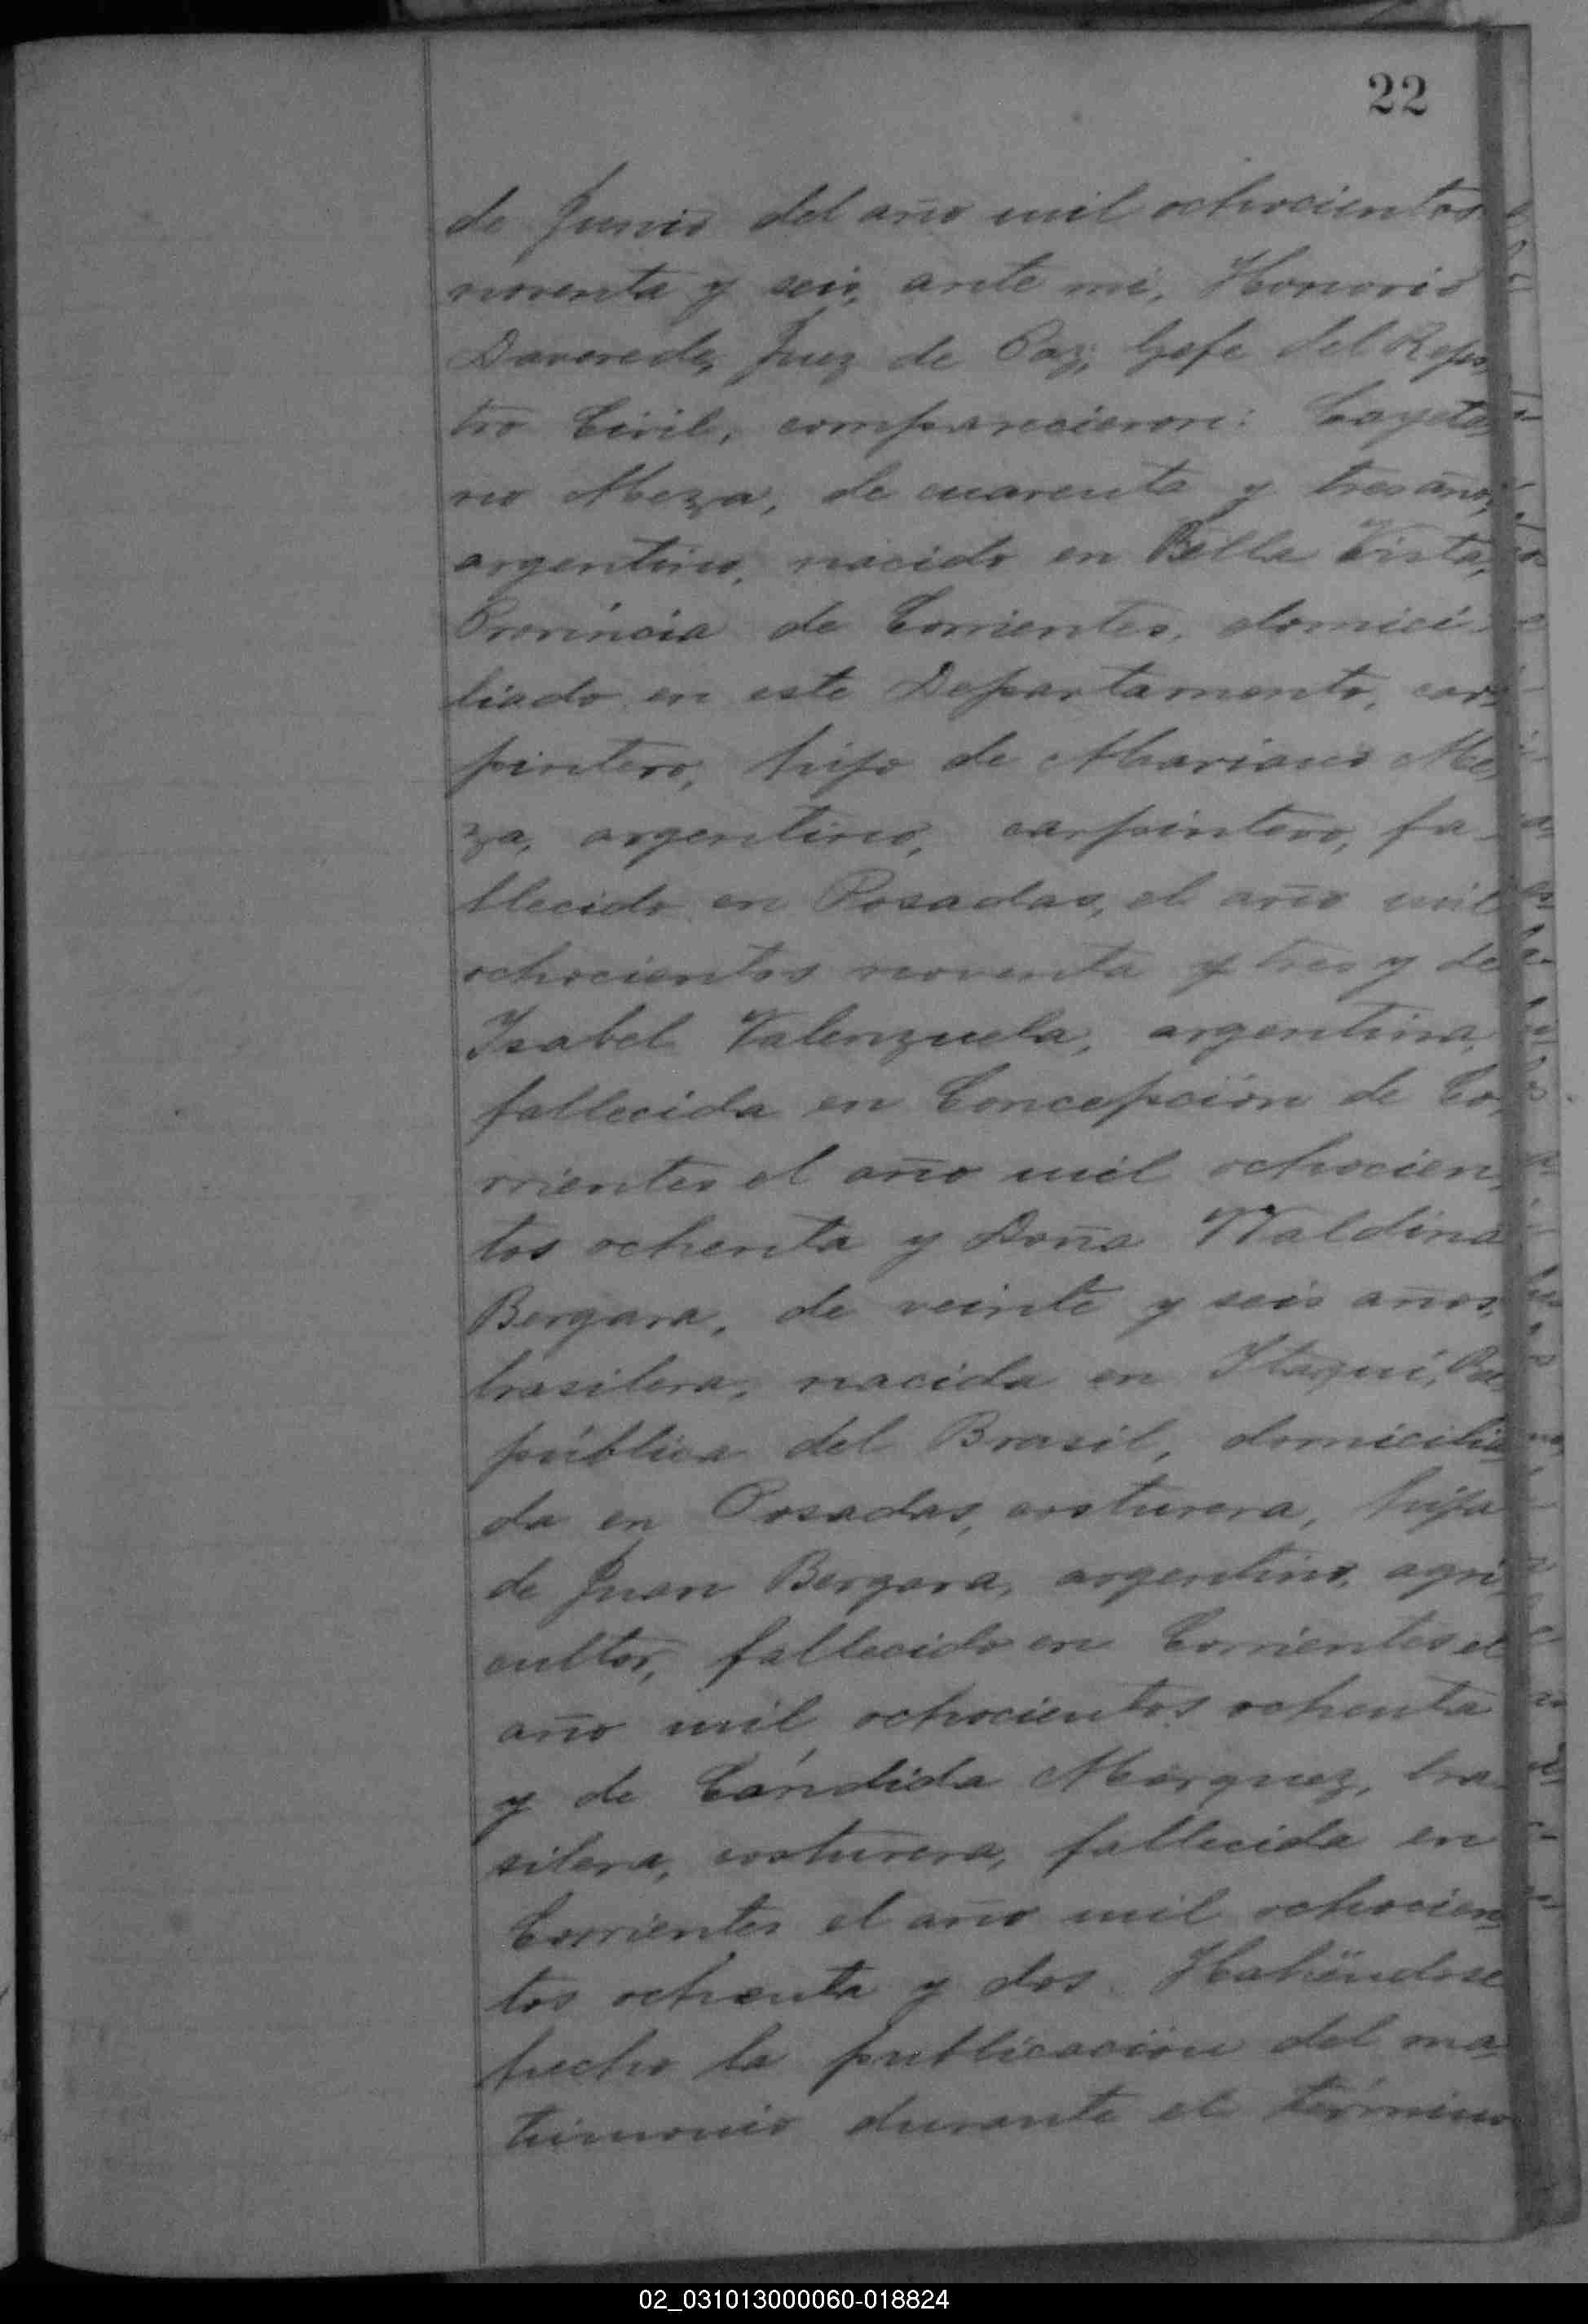 22
de Junio del año mil ochocientos
noventa y seis, ante mi, Honorio
Daverede, Juez de Paz, Gefe del Regis
tro Civil, comparecieron: Cayeta
no Meza, de cuarenta y tres años,
argentino, nacido en Bella Vista,
Provincia de Corrientes, domici-
liado en este Departamento, car-
pintero, hijo de Mariano Me-
za, argentino, carpintero, fa-
llecido en Posadas, el año mil
ochocientos noventa y tres y de
Isabel Valenzuela, argentina,
fallecida en Concepción de Co-
rrientes el año mil ochocien-
tos ochenta y Doña Waldina
Bergara, de veinte y seis años,
brasilera, nacida en Itaquí, Re-
pública del Brasil, domicilia
da en Posadas, costurera, hija
de Juan Bergara, argentino, agri-
cultor, fallecido en Corrientes el
año mil ochocientos ochenta
y de Cándida Marquez, bra-
silera, costurera, fallecida en
Corrientes el año mil ochocien-
tos ochenta y dos. Habiendose
hecho la publicación del ma-
trimonio durante el término
02_031013000060-018824